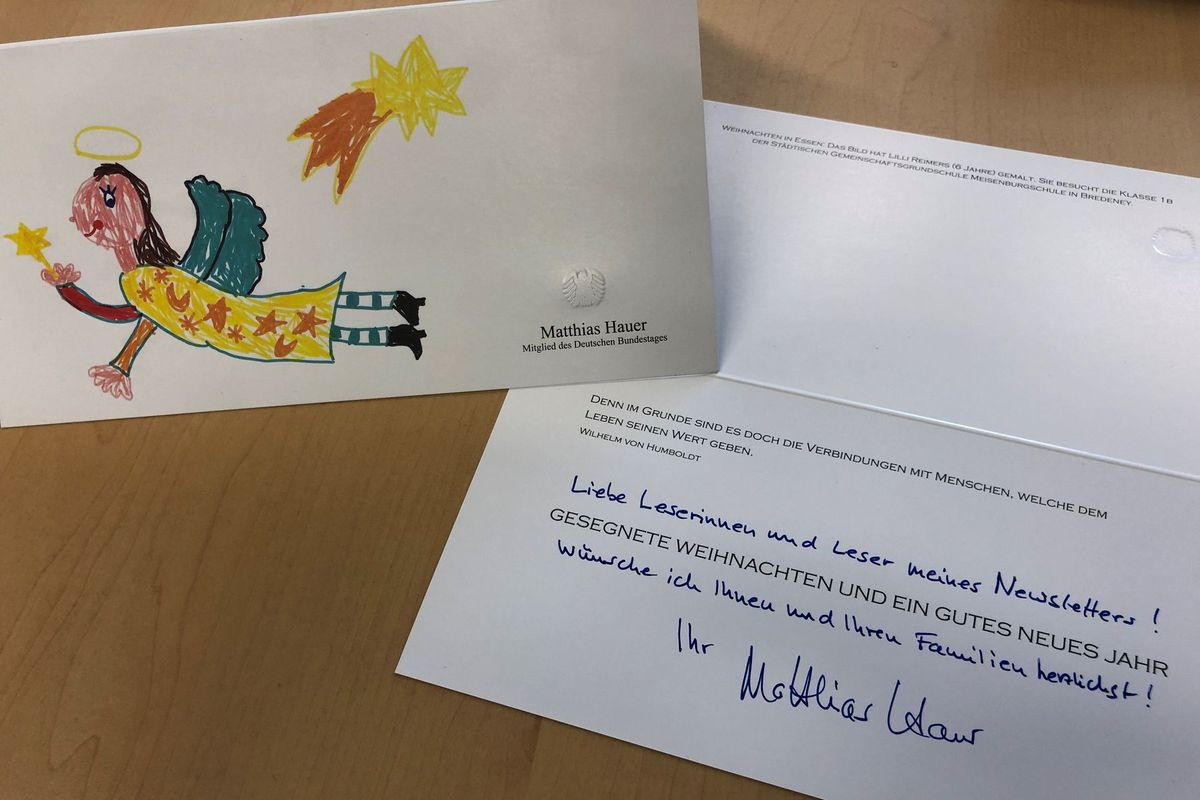 Matthias Hauer
Mitglied des Deutschen Bundestages
Weihnachten in Essen: Das Bild hat Lilli Reimers (6 Jahre) gemalt. Sie besucht die Klasse 1b
der Städtischen Gemeinschaftsgrundschule Meisenburgschule in Bredeney.
Denn im Grunde sind es doch die Verbindungen mit Menschen, welche dem
Leben seinen Wert geben.
Wilhelm von Humboldt
Liebe Leserinnen und Leser meines Newsletters!
GESEGNETE WEIHNACHTEN UND EIN GUTES NEUES JAHR
wünsche ich Ihnen und Ihren Familien herzlichst!
Ihr
Matthias Hauer